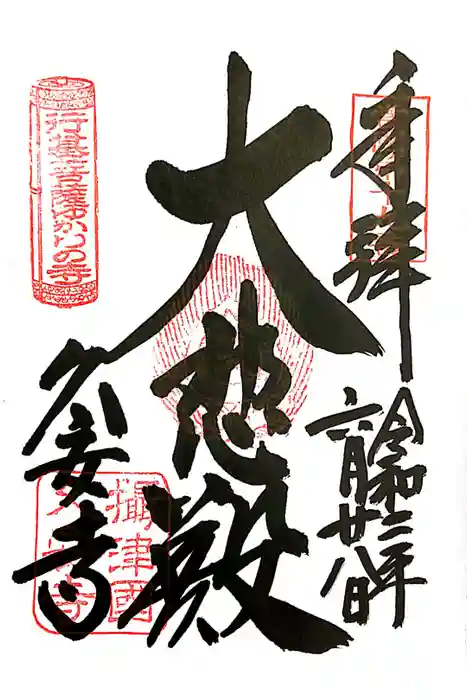 奉拝
令和二年
六月廿八日
大悲殿
行基菩薩ゆかりの寺
久安寺
攝津國
久安寺